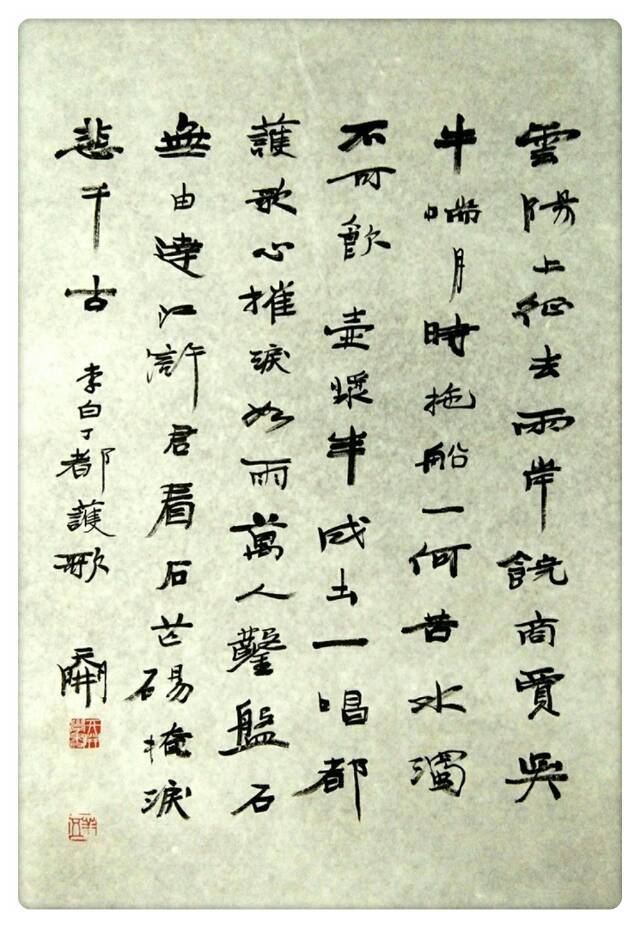 雲陽上征去兩岸饒商賈吳
牛喘月時拖船一何苦水濁
不可飲壺漿半成土一唱都
護歌心摧淚如雨萬人鑿盤石
無由達江滸君看石芒碭掩淚
悲千古
李白丁都護歌
天開